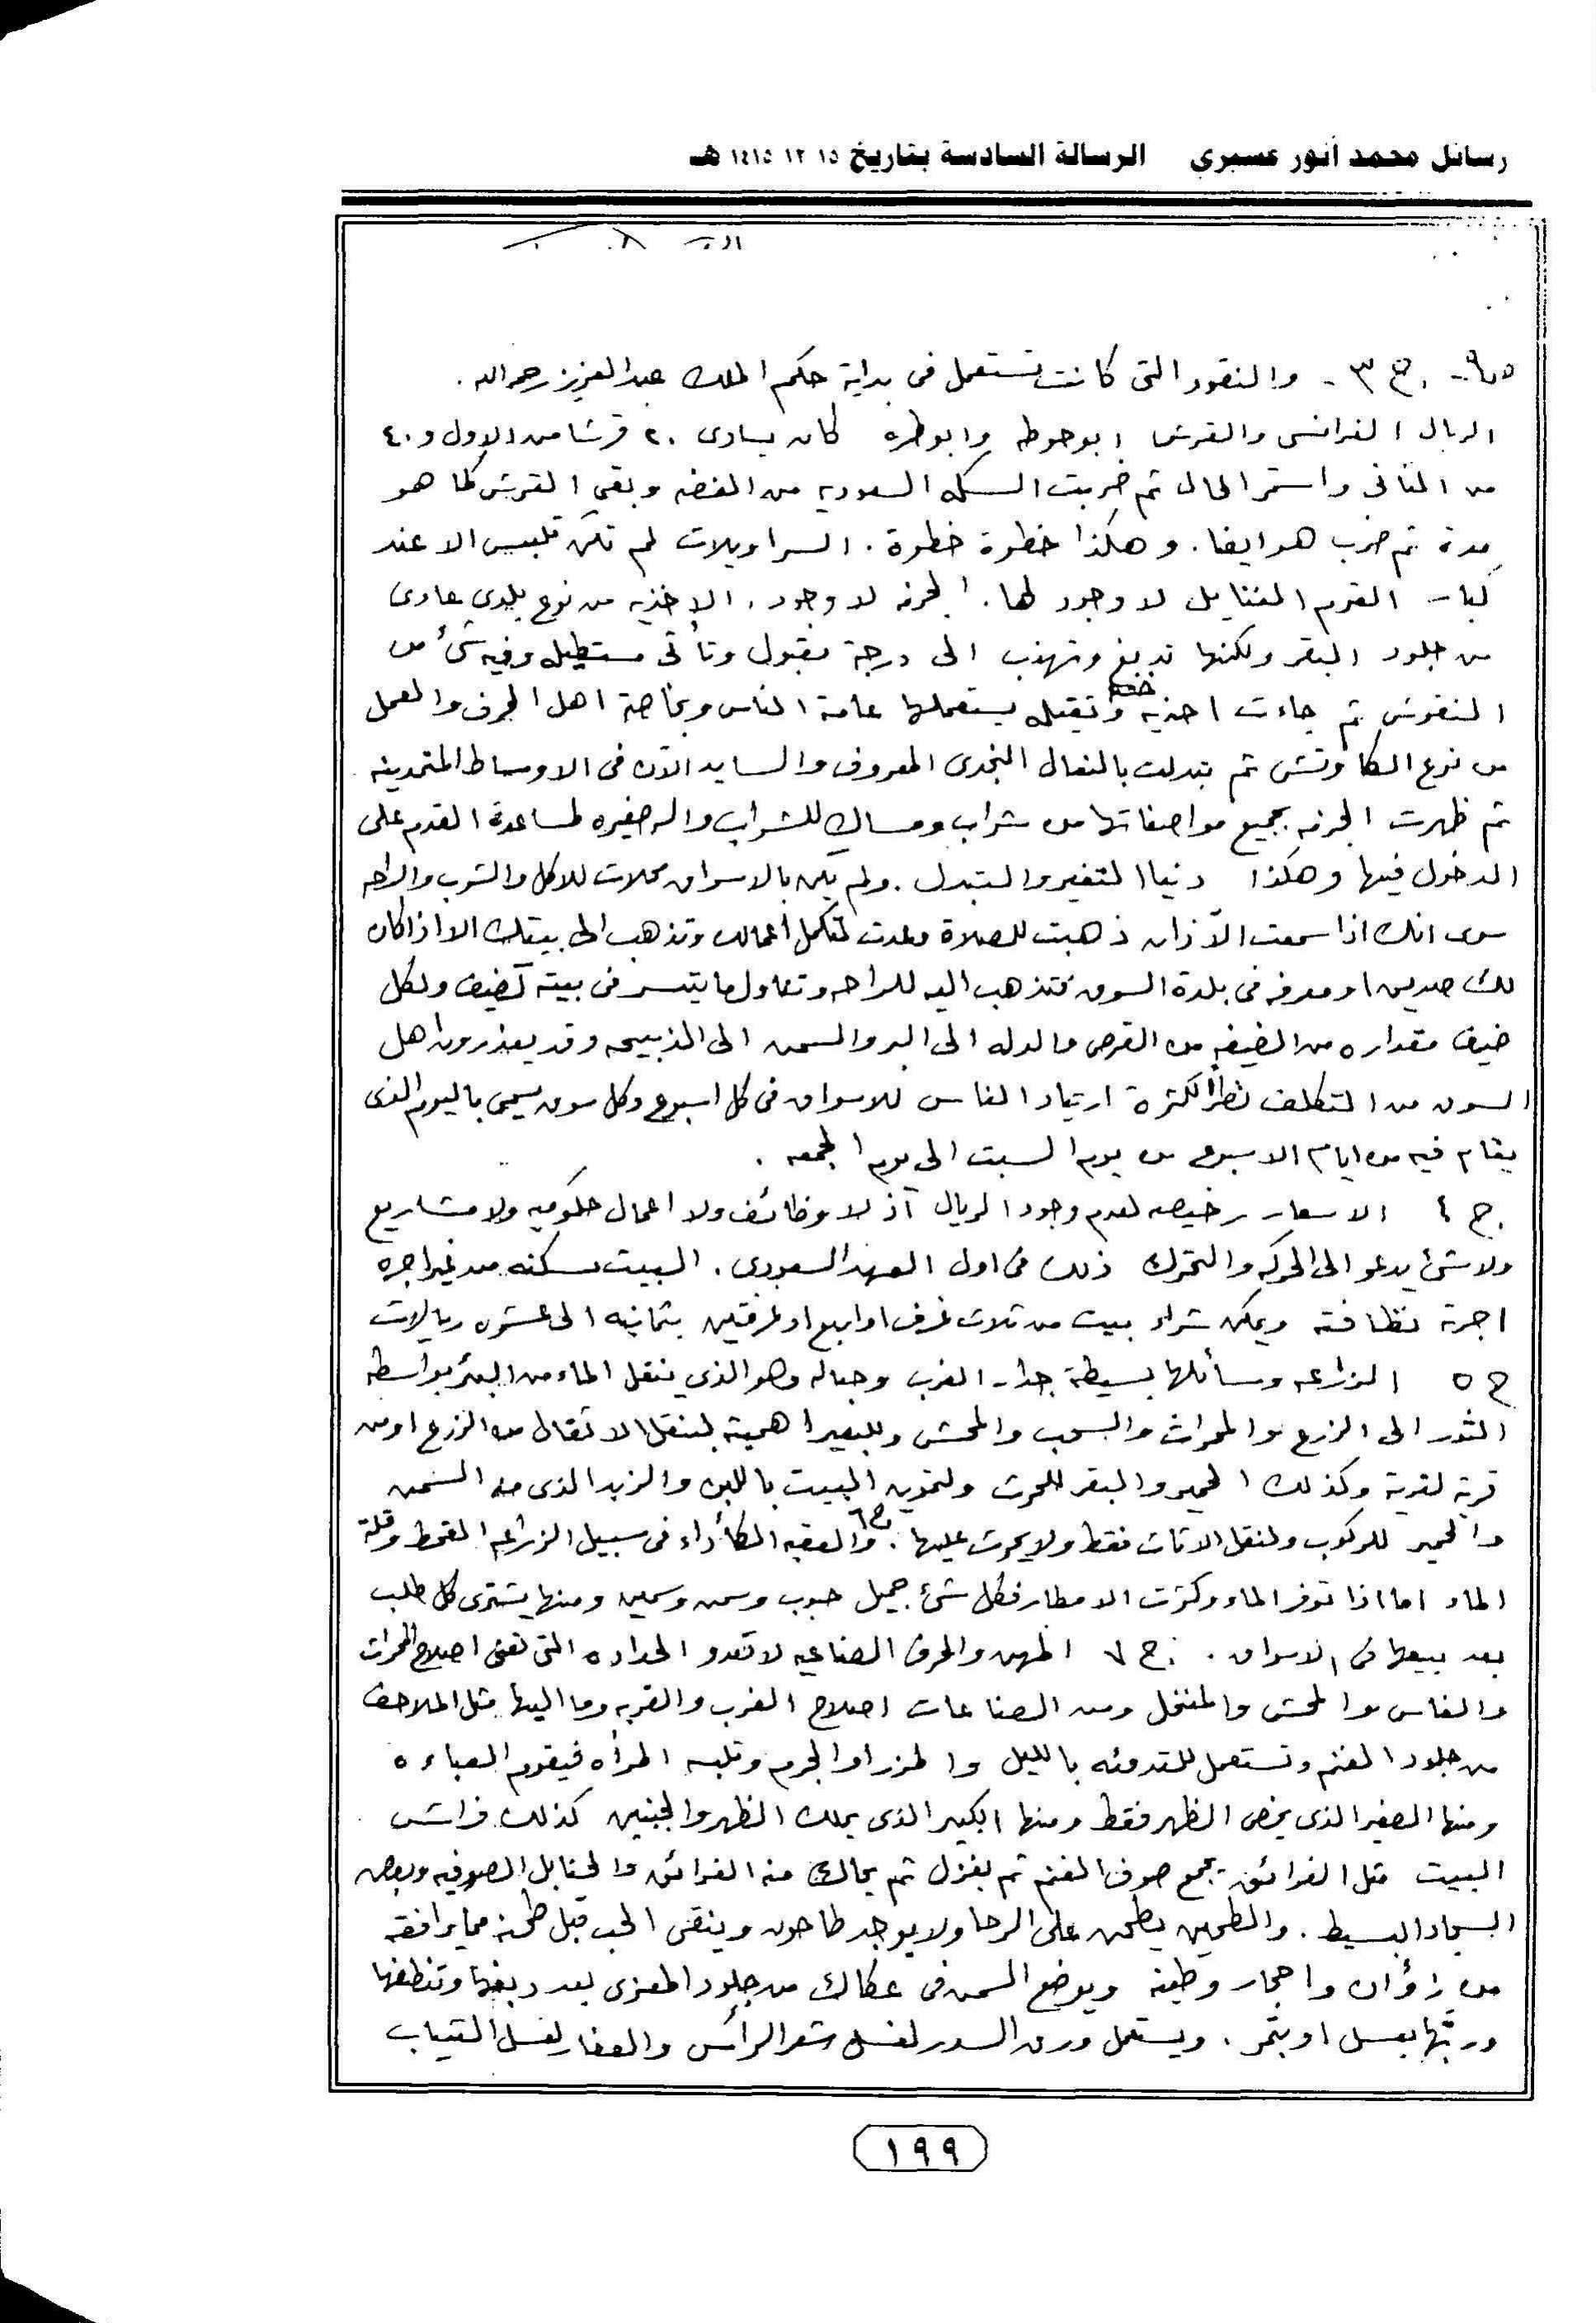 رسائل محمد أنور عسيري الرسالة السادسة بتاريخ ١٥ ١٢ ١٤١٥ هـ
ج ٣ - والنقود التى كانت تستعمل فى بداية حكم الملك عبدالعزيز رحمه الله .
الريال الفرانسى والقرش ابوحوطه وابوطره كان يساوى ٢٠ قرشا من الاول و ٤٠
من الثانى واستمر الحال ثم ضربت السكه السعوديه من الفضه وبقى القرش كما هو
مدة ثم ضرب هو ايضا . وهكذا خطوة خطوة . السراويلات لم تكن تلبس الا عند
كبار القوم الفنايل لا وجود لها . الجزمه لا وجود . الاحذيه من نوع بلدى عادى
من جلود البقر ولكنها تدبغ وتهذب الى درجة مقبول وتأتى مستطيله وفيه شئ من
النقوش ثم جاءت احذيه وثقيله يستعملها عامة الناس وبخاصة اهل الحرف والعمل
من نوع الكاوتش ثم تبدلت بالنعال النجدى المعروف والسايد الآن فى الاوساط المتمدينه
ثم ظهرت الجزمه بجميع مواصفاتها من شراب ومساك للشراب واله صغيره لمساعدة القدم على
الدخول فيها وهكذا دنيا التغير والتبدل . ولم يكن بالاسواق محلات للاكل والشرب والراحه
سوى انك اذا سمعت الآذان ذهبت للصلاة وعدت لتكمل أعمالك وتذهب الى بيتك الا اذا كان
لك صديق او معرفه فى بلدة السوق فتذهب اليه للراحه وتناول ما يتيسر فى بيته كضيف ولكل
ضيف مقداره من الضيفه من القرص والدله الى البر والسمن الى الذبيحه وقد يعذرون اهل
السوق من التكلف نظراً لكثرة ارتياد الناس للاسواق فى كل اسبوع وكل سوق يسمى باليوم الذى
يقام فيه من ايام الاسبوع من يوم السبت الى يوم الجمعه .
ج ٤ الاسعار رخيصه لعدم وجود الريال آذ لا وظائف ولا اعمال حكوميه ولا مشاريع
ولا شئ يدعو الى الحركه والتحرك ذلك فى اول العهد السعودى . البيت تسكنه من غير اجره
اجرته نظافته ويمكن شراء بيت من ثلاث غرف او اربع او غرفتين بثمانيه الى عشره ريالات
ج ٥ الزراعه وسائلها بسيطة جدا . الغرب وحباله وهو الذى ينقل الماء من البئر بواسطه
الثور الى الزرع والمحراث والسحب والمحش وللبعير اهمية لنقل الاثقال من الزرع او من
قرية لقرية وكذلك الحمير والبقر للحرث ولتموين البيت باللبن والزبد الذى منه السمن
والحمير للركوب ولنقل الاثاث فقط ولا يحرث عليها . ج٦ والعقبه الكأداء فى سبيل الزراعه القحط وقلة
الماء اما اذا توفر الماء وكثرت الامطار فكل شئ جميل حبوب وسمن وسمين ومنها يشترى كل طلب
بعد بيعها فى الاسواق . ج ٧ المهن والحرف الصناعيه لا تعدو الحداده التى تعنى اصلاح المحراث
والفاس والمحش والمنخل ومن الصناعات اصلاح الغرب والقربه وما اليها مثل الملاحف
من جلود الغنم وتستعمل للتدفئه بالليل والمزر او الجرم وتلبسه المرأه فيقوم العباءه
ومنها الصغير الذى يخص الظهر فقط ومنها الكبير الذى يملك الظهر والجنبين كذلك فراش
البيت مثل الفرائق يجمع صوف الغنم ثم يغزل ثم يحاك منه الفرائق والحنابل الصوفيه وبعض
السجاد البسيط . والطحين يطحن على الرحا ولا يوجد طاحون وينقى الحب قبل طحنه مما يرافقه
من زؤان واحجار وطينه ويوضع السمن فى عكاك من جلود المعزى بعد دبغها وتنظفها
وربّها بعسل او بتمر . ويستعمل ورق السدر لغسل شعر الرأس والغفار لغسل الثياب
١٩٩